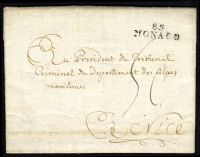 85
MONACO
Au President du Tribunal
Criminel du Departement des Alpes
maritimes
Nice